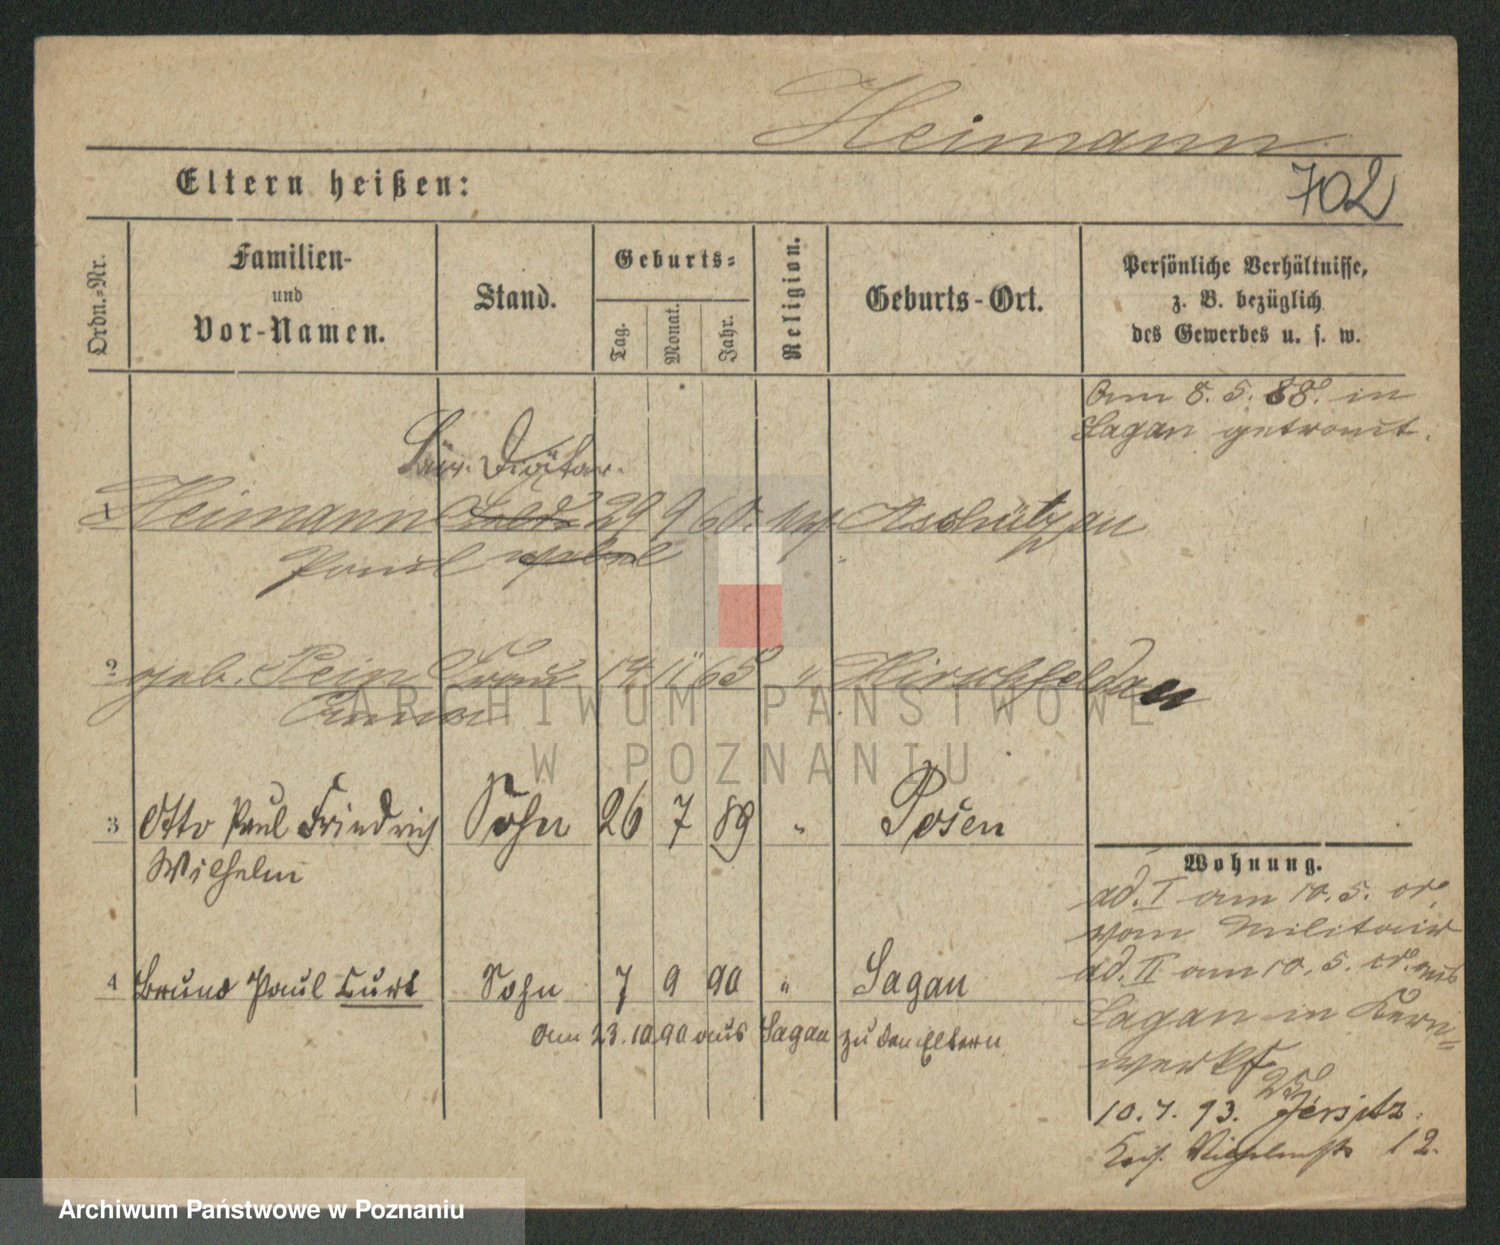 Heimann
Eltern heißen:
702
Ordn.-Nr.
Familien-
und
Vor-Namen.
Stand.
Geburts-
Tag.
Monat.
Jahr.
Religion.
Geburts-Ort.
Persönliche Verhältnisse,
z. B. bezüglich
des Gewerbes u. s. w.
Am 8. 5. 88. in
Sagan getraut.
Diätar.
1 Heimann 29 9 60. Aschützau
Paul
2 geb. Pein Frau 14 11 65 " Hirschfeldau
Anna
3 Otto Paul Friedrich Sohn 26 7 89 " Posen
Wilhelm
Wohnung.
ad. I am 10. 5. cr.
vom Militair
4 Bruno Paul Curt Sohn 7 9 90 " Sagan
ad. II am 10. 5. cr. aus
Sagan in Kern-
am 23. 10 90 aus Sagan zu den Eltern
werk
10. 7. 93. Jersitz.
Kais. Wilhelmstr 12.
ARCHIWUM PAŃSTWOWE
W POZNANIU
Archiwum Państwowe w Poznaniu